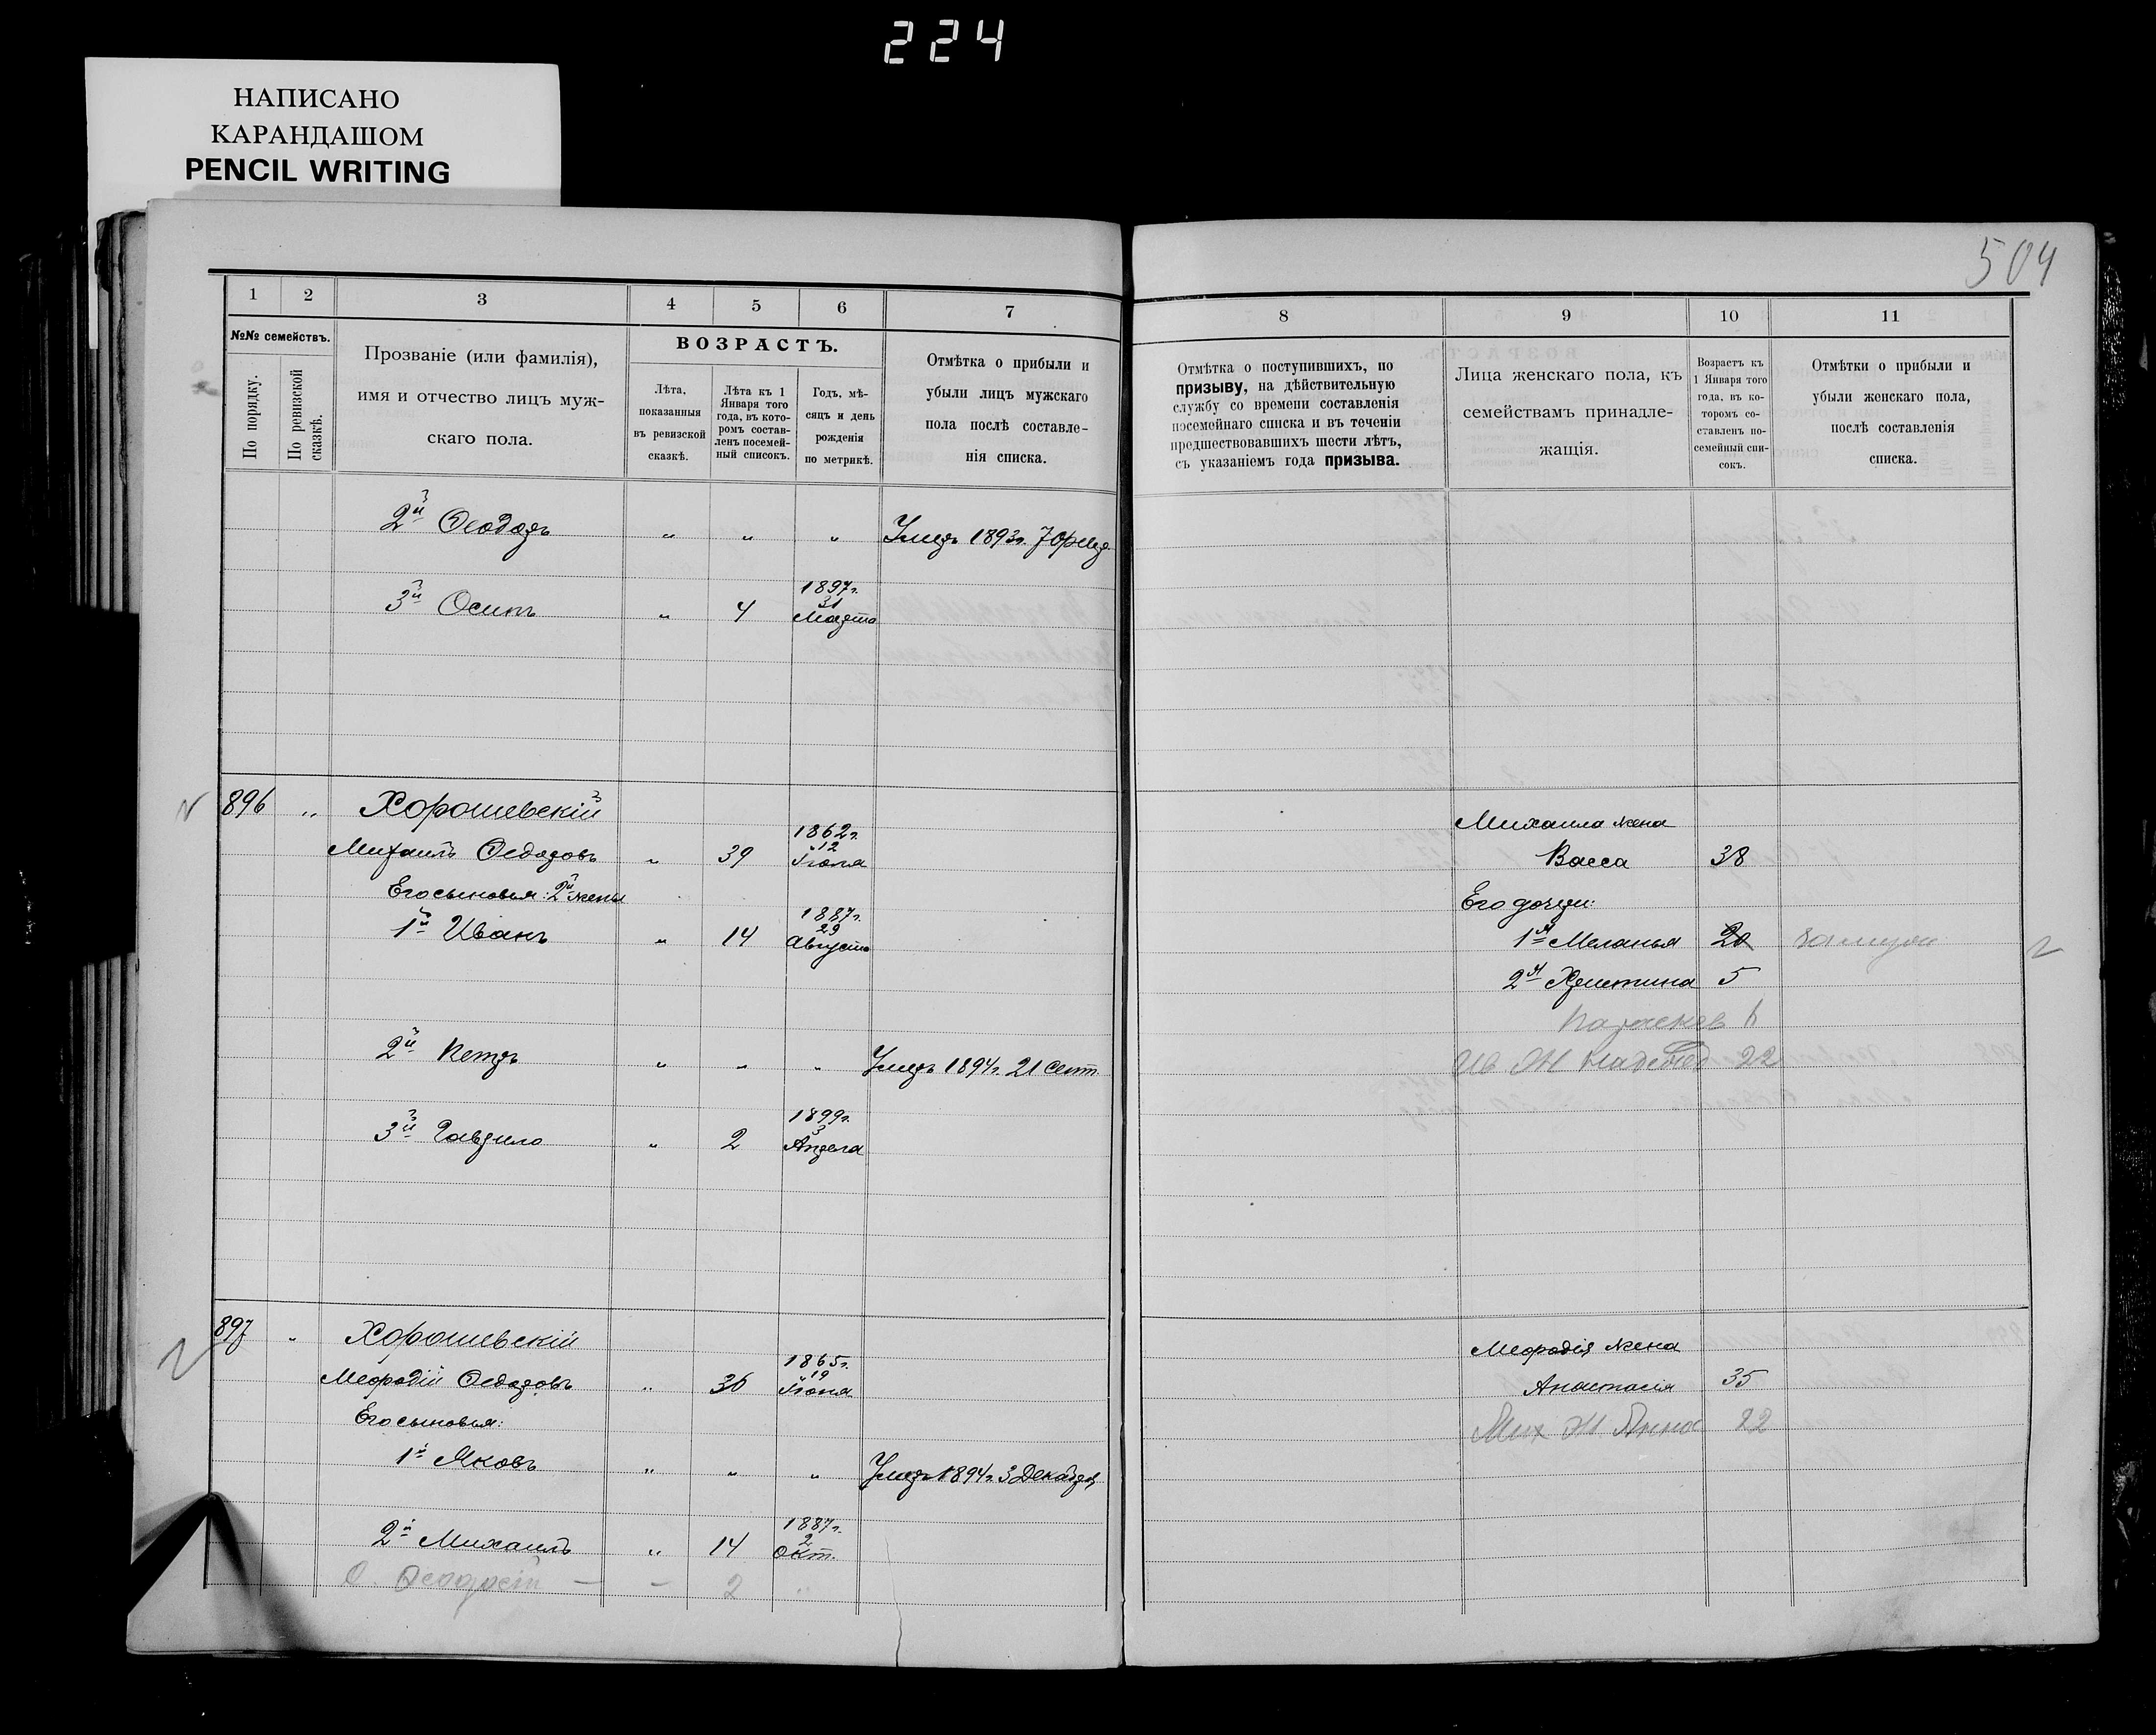 224
НАПИСАНО
КАРАНДАШОМ
PENCIL WRITING
504
1 2 3 4 5 6 7
№№ семействъ.
По порядку.
По ревизской сказкѣ.
Прозваніе (или фамилія),
имя и отчество лицъ муж-
скаго пола.
ВОЗРАСТЪ.
Лѣта,
показанныя
въ ревизской
сказкѣ.
Лѣта къ 1
Января того
года, въ кото-
ромъ состав-
ленъ посемей-
ный списокъ.
Годъ, мѣ-
сяцъ и день
рожденія
по метрикѣ.
Отмѣтка о прибыли и
убыли лицъ мужскаго
пола послѣ составле-
нія списка.
2й Ѳеодоръ " " " Умеръ 1893г. 7 февр.
1897г.
31
3й Осипъ " 4 Марта
896 " Хорошевскій
1862г.
12
Михаилъ Ѳедоровъ " 39 Іюня
Его сыновья: 2й жены
1887г.
29
1й Иванъ " 14 Августа
2й Петръ " " " Умеръ 1894г. 21 Сент.
1899г.
3
3й Гаврило " 2 Апреля
897 " Хорошевскій
1865г.
19
Меѳодій Ѳедоровъ " 36 Іюня
Его сыновья:
1й Яковъ " " " Умеръ 1894г. 3 Декабря
1887г.
2
2й Михаилъ " 14 Окт.
Ѳеодосій — — 2 "
8 9 10 11
Отмѣтка о поступившихъ, по
призыву, на дѣйствительную
службу со времени составленія
посемейнаго списка и въ теченіи
предшествовавшихъ шести лѣтъ,
съ указаніемъ года призыва.
Лица женскаго пола, къ
семействамъ принадле-
жащія.
Возрастъ къ
1 Января того
года, въ ко-
торомъ со-
ставленъ по-
семейный спи-
сокъ.
Отмѣтки о прибыли и
убыли женскаго пола,
послѣ составленія
списка.
Михаила жена
Васса 38
Его дочери:
1я Меланья 20 замужи
2я Христина 5
Параскев 6
Ив Ж 22
Меѳодія жена
Анастасія 35
Мих Ж Анна 22